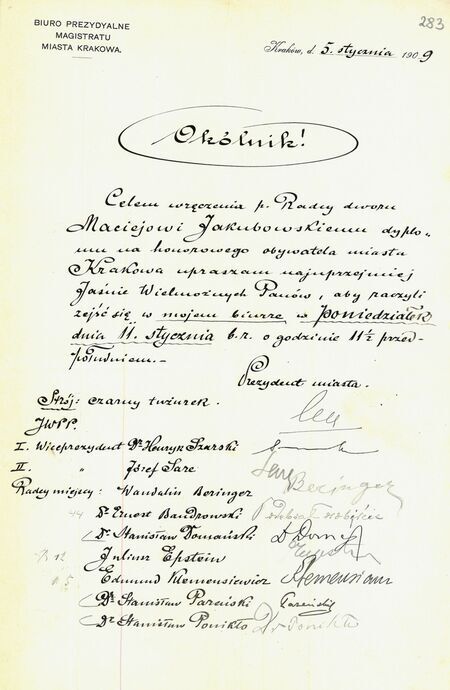 BIURO PREZYDYALNE
MAGISTRATU
MIASTA KRAKOWA.
283
Kraków, d. 5. stycznia 1909
Okólnik!
Celem wręczenia p. Radcy dworu
Maciejowi Jakubowskiemu dyplo-
mu na honorowego obywatela miasta
Krakowa upraszam najuprzejmiej
Jaśnie Wielmożnych Panów, aby raczyli
zejść się w mojem biurze w poniedziałek
dnia 11. stycznia b.r. o godzinie 11½ przed-
południem.-
Prezydent miasta.
Strój: czarny tużurek.
Leo
JWPP.
I. Wiceprezydent Dr. Henryk Szarski
II. " Józef Sare Sare
Radcy miejscy: Wandalin Beringer Beringer
Dr. Ernest Bandrowski
Dr. Stanisław Domański Dr Domański
Juliusz Epstein Epstein
Edmund Klemensiewicz Klemensiewicz
Dr. Stanisław Pareński Pareński
Dr. Stanisław Ponikło Dr Ponikło